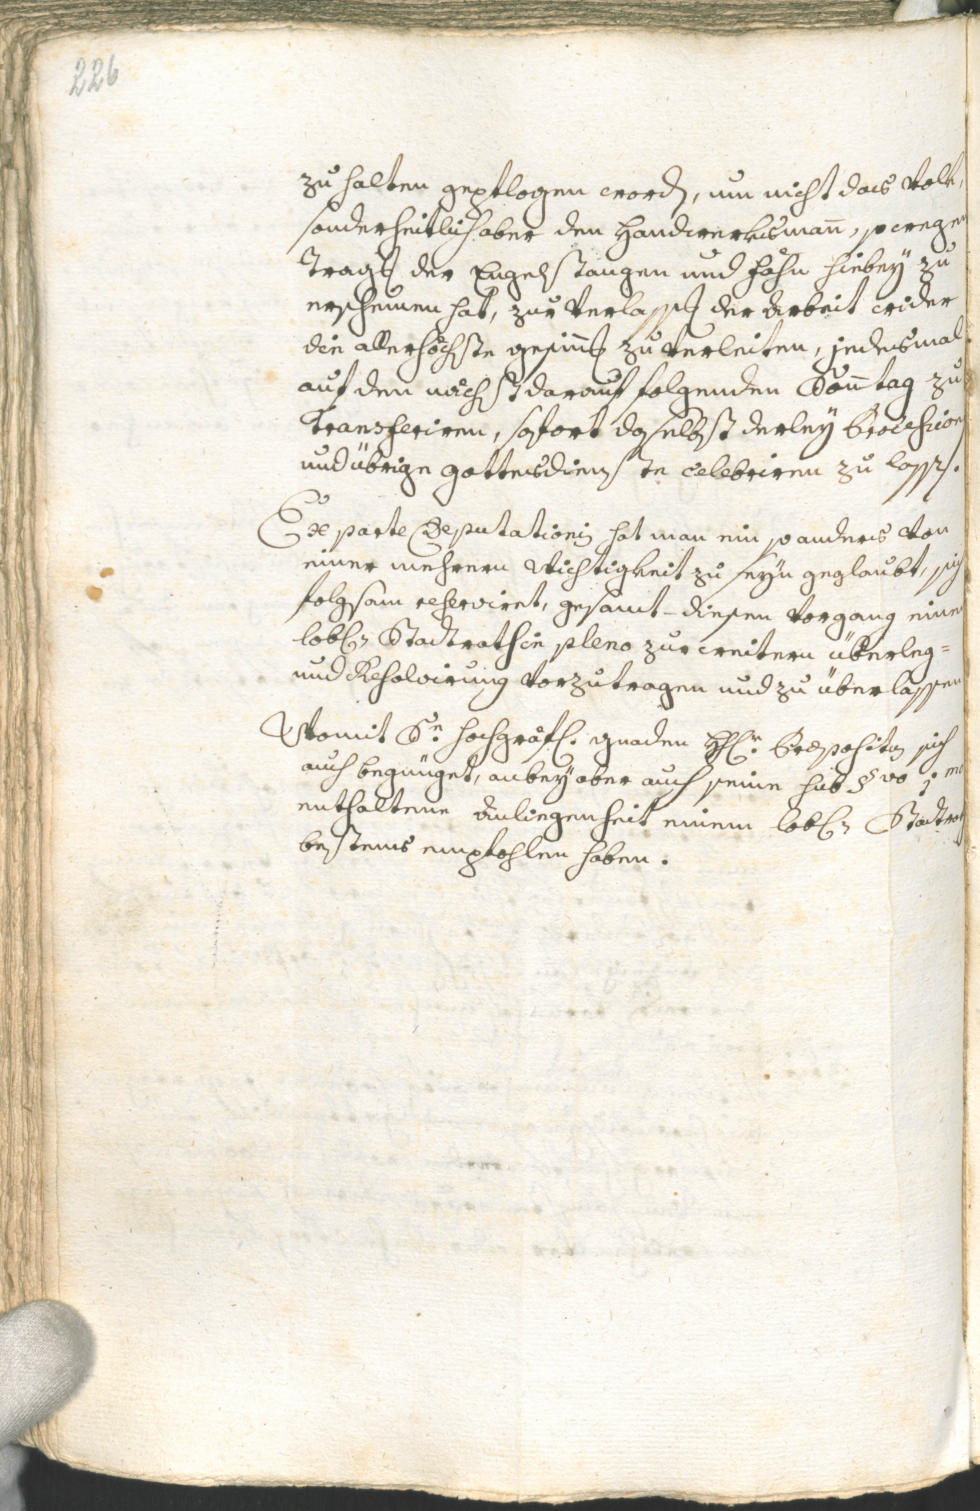 226
zu halten gepflogen word, um nicht das Volk,
sonderheitlich aber den Handwerksmann, so wegen
Tragg der Engelstangen und Fahn hiebey zu
erscheinen hat, zur Verlassg der Arbeit wider
die allerhöchste gesinng zu verleiten, jedesmal
auf den nächst darauf folgenden Sonntag zu
transferiren, sofort daselbst derley Procession
und übrige gottesdienste celebriren zu lassn.
Ex parte Deputationis hat man ein so anderes von
einer mehrern Wichtigkeit zu seyn geglaubt, sich
folgsam reserviret, gesamt-diesen Vorgang einem
lobln Stadtrath in pleno zur weitern überleg=
und Resolvirung vorzutragen und zu überlassen
Womit Sr. hochgräfl. gnaden H. Hr. Praepositus sich
auch begnüget, anbey aber auch seine sub §vo 1mo
enthaltene Anliegenheit einem lobln Stadtrath
bestens empfohlen haben.